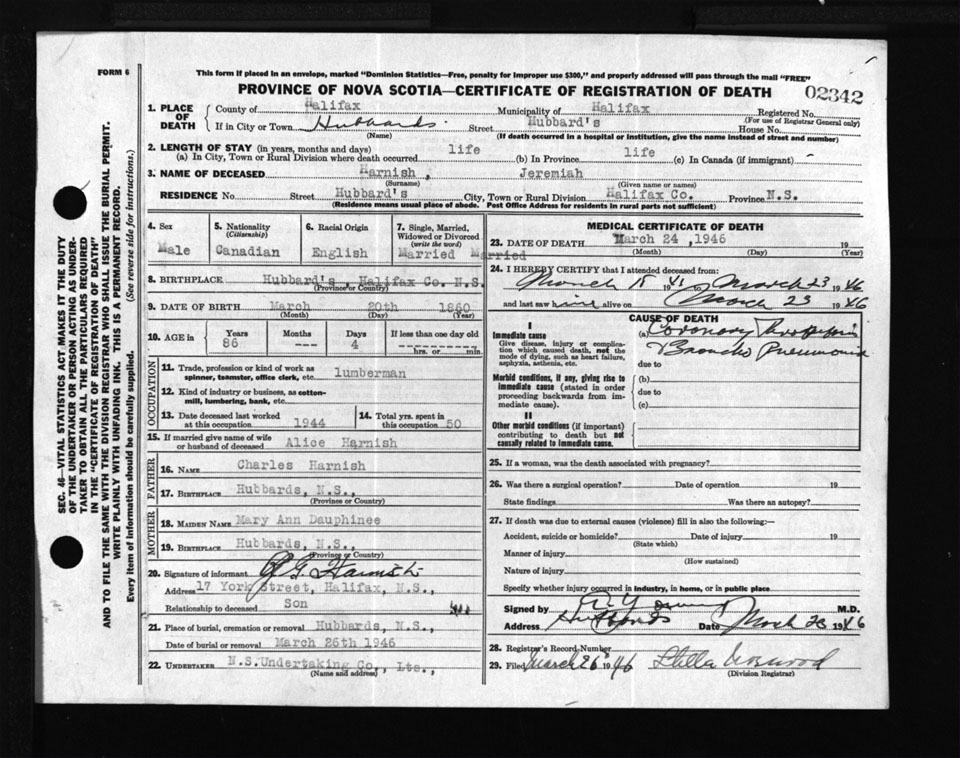 FORM 6
This form if placed in an envelope, marked "Dominion Statistics—Free, penalty for improper use $300," and properly addressed will pass through the mail "FREE"
PROVINCE OF NOVA SCOTIA—CERTIFICATE OF REGISTRATION OF DEATH
02342
1. PLACE OF DEATH
County of Halifax Municipality of Halifax Registered No.
(For use of Registrar General only)
If in City or Town Hubbards. Street Hubbard's House No.
(Name) (If death occurred in a hospital or institution, give the name instead of street and number)
2. LENGTH OF STAY (in years, months and days)
(a) In City, Town or Rural Division where death occurred life (b) In Province life (c) In Canada (if immigrant) -
3. NAME OF DECEASED Harnish, Jeremiah
(Surname) (Given name or names)
RESIDENCE No. Street Hubbard's City, Town or Rural Division Halifax Co. Province N.S.
(Residence means usual place of abode. Post Office Address for residents in rural parts not sufficient)
4. Sex
Male
5. Nationality
(Citizenship)
Canadian
6. Racial Origin
English
7. Single, Married, Widowed or Divorced
(write the word)
Married Married
8. BIRTHPLACE Hubbard's, Halifax Co. N.S.
(Province or Country)
9. DATE OF BIRTH March 20th 1860
(Month) (Day) (Year)
10. AGE in
Years Months Days If less than one day old
86 --- 4 hrs. or min.
OCCUPATION
11. Trade, profession or kind of work as
spinner, teamster, office clerk, etc. lumberman
12. Kind of industry or business, as cotton-
mill, lumbering, bank, etc.
13. Date deceased last worked
at this occupation 1944
14. Total yrs. spent in
this occupation 50
15. If married give name of wife
or husband of deceased Alice Harnish
FATHER
16. NAME Charles Harnish
17. BIRTHPLACE Hubbards, N.S.,
(Province or Country)
MOTHER
18. MAIDEN NAME Mary Ann Dauphinee
19. BIRTHPLACE Hubbards, N.S.,
(Province or Country)
20. Signature of informant Harnish
Address 17 York Street, Halifax, N.S.,
Relationship to deceased Son
21. Place of burial, cremation or removal Hubbards, N.S.,
Date of burial or removal March 26th 1946
22. UNDERTAKER N.S.Undertaking Co., Lts.,
(Name and address)
MEDICAL CERTIFICATE OF DEATH
23. DATE OF DEATH March 24 ,1946 19
(Month) (Day) (Year)
24. I HEREBY CERTIFY that I attended deceased from:
March 15 19 to March 23 1946
and last saw him alive on March 23 1946
CAUSE OF DEATH
I
Immediate cause
Give disease, injury or complication which caused death, not the mode of dying, such as heart failure, asphyxia, asthenia, etc.
(a) Coronary
Broncho Pneumonia
due to
Morbid conditions, if any, giving rise to immediate cause (stated in order proceeding backwards from immediate cause)
(b)
due to
(c)
II
Other morbid conditions (if important) contributing to death but not causally related to immediate cause.
25. If a woman, was the death associated with pregnancy?
26. Was there a surgical operation? Date of operation 19
State findings Was there an autopsy?
27. If death was due to external causes (violence) fill in also the following:—
Accident, suicide or homicide? Date of injury 19
(State which)
Manner of injury
(How sustained)
Nature of injury
Specify whether injury occurred in industry, in home, or in public place
Signed by M.D.
Address Hubbards Date March 23 1946
28. Registrar's Record Number
29. Filed March 26 1946 Stella Norwood
(Division Registrar)
SEC. 46—VITAL STATISTICS ACT MAKES IT THE DUTY
OF THE UNDERTAKER OR PERSON ACTING AS UNDER-
TAKER TO OBTAIN ALL THE PARTICULARS REQUIRED
IN THE "CERTIFICATE OF REGISTRATION OF DEATH"
AND TO FILE THE SAME WITH THE DIVISION REGISTRAR WHO SHALL ISSUE THE BURIAL PERMIT.
WRITE PLAINLY WITH UNFADING INK. THIS IS A PERMANENT RECORD.
Every item of information should be carefully supplied. (See reverse side for instructions.)